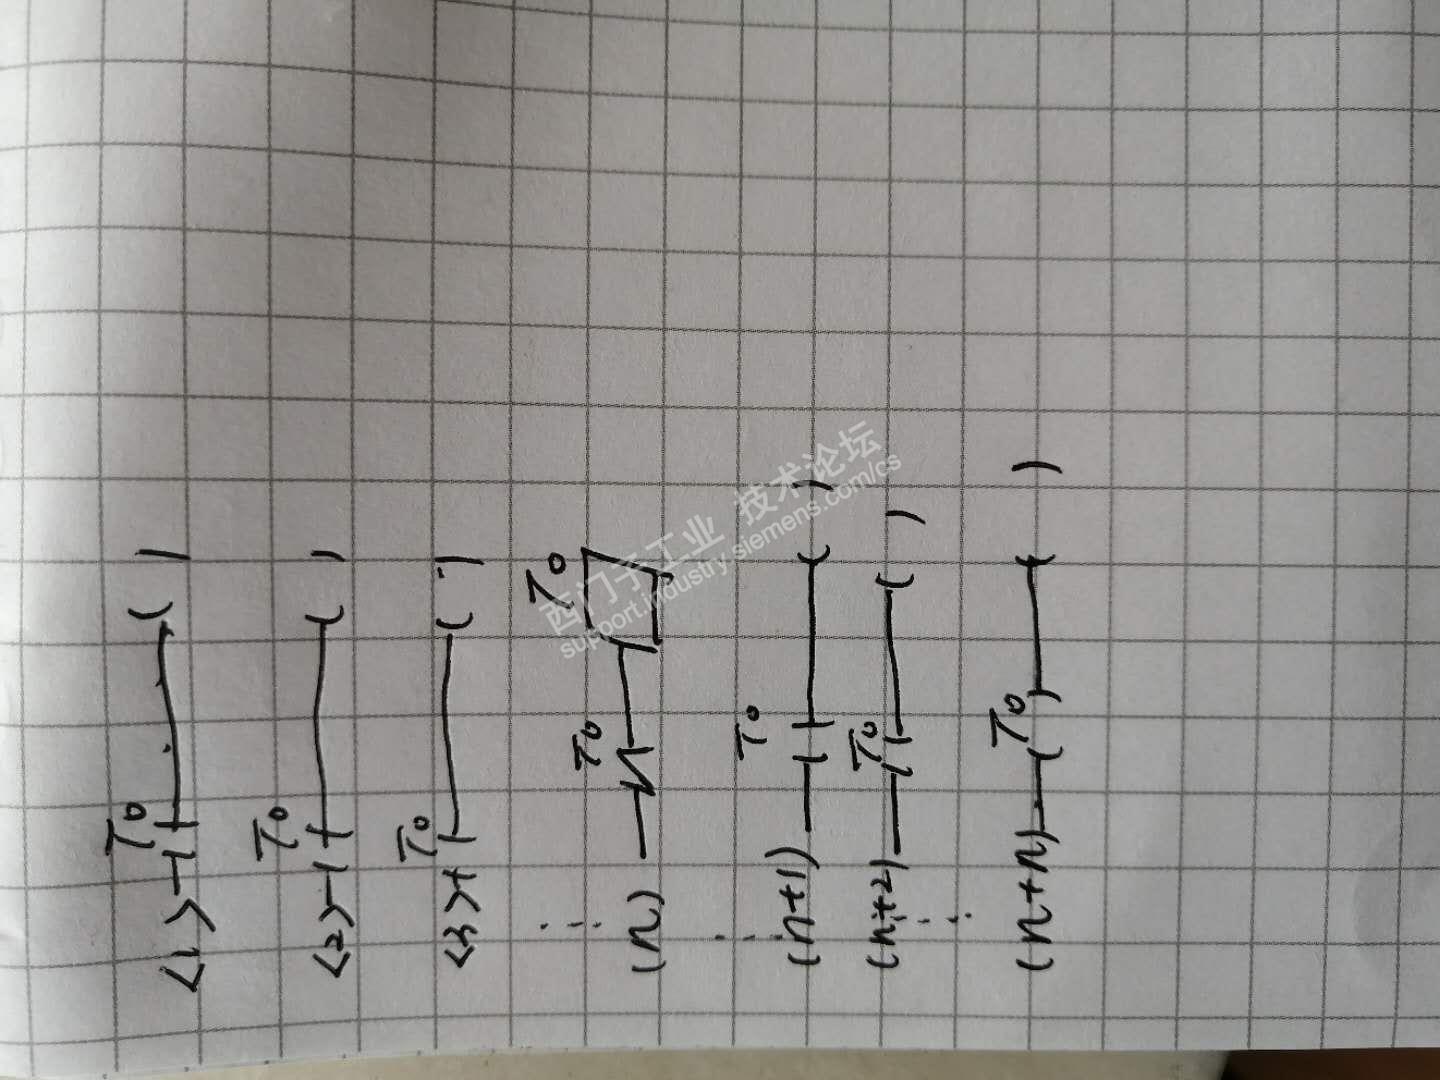 <1> T0 ( )
<2> T0 ( )
<3> T0 ( )
(n) T0 T0
(n+1) T0 ( )
(n+2) T0 ( )
(n+n) T0 ( )
西门子工业 技术论坛
support.industry.siemens.com/cs